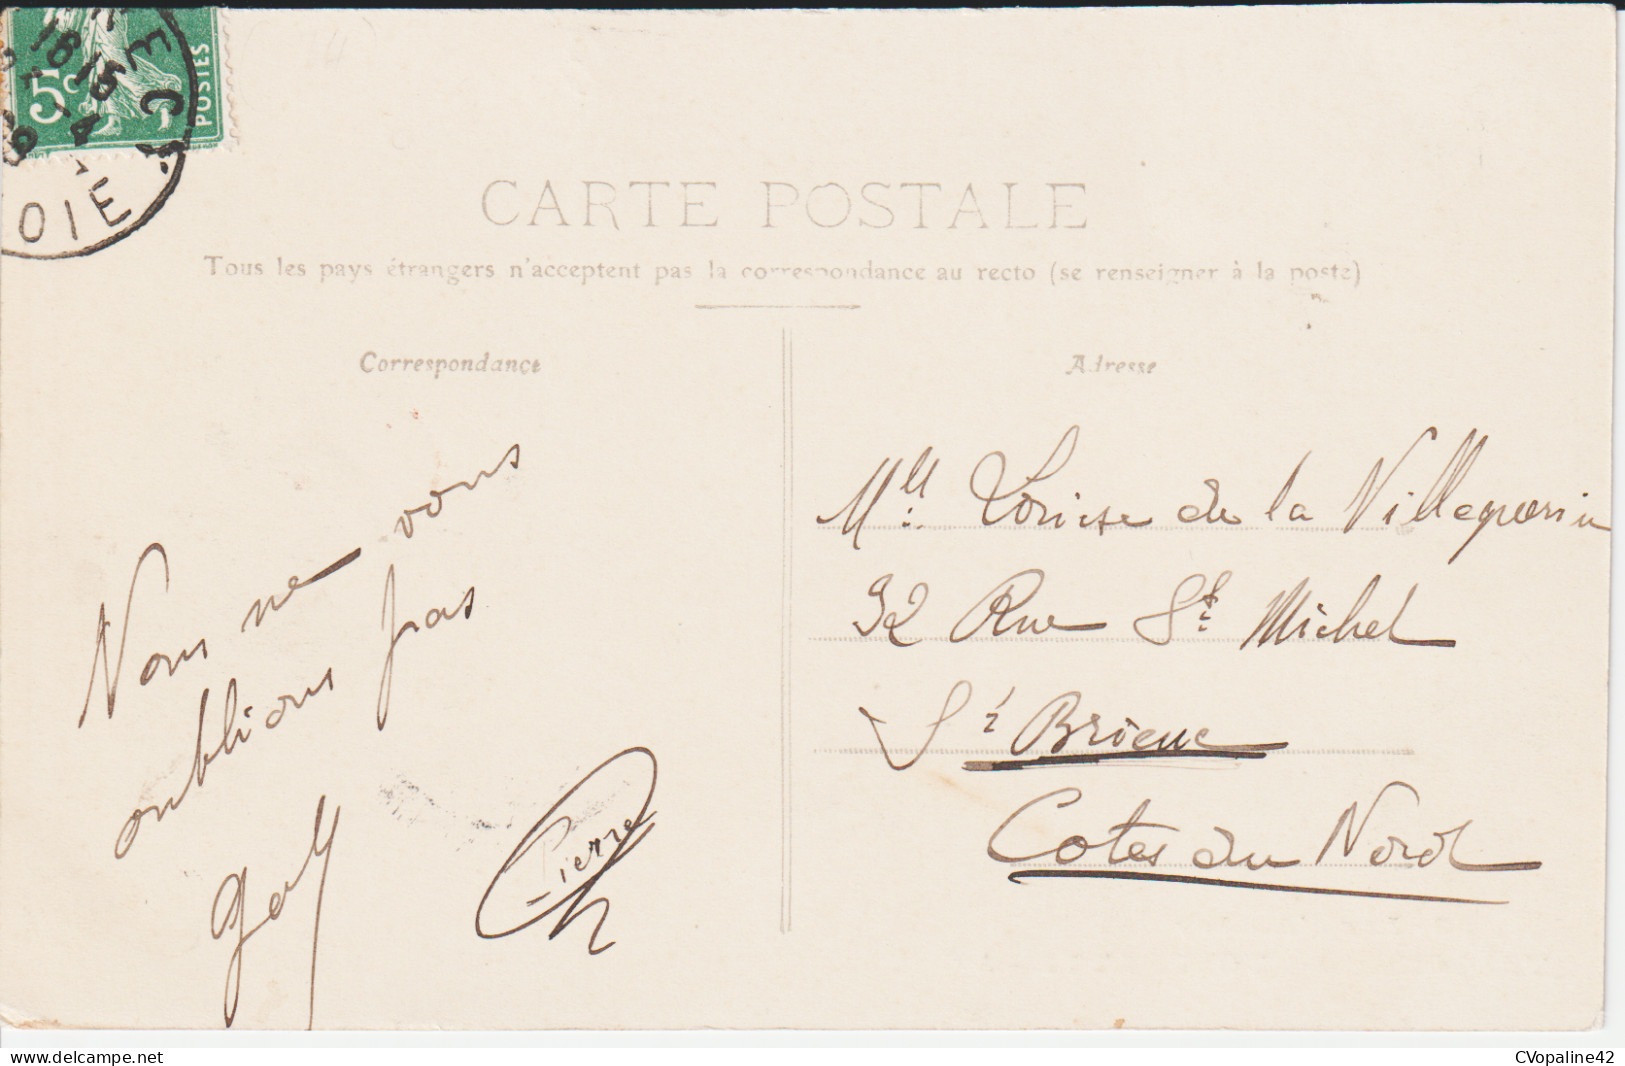 5c
POSTES
18 15
OIE
CARTE POSTALE
Tous les pays étrangers n'acceptent pas la correspondance au recto (se renseigner à la poste)
Correspondance
Adresse
Nous ne vous
oublions pas
Gaby
Pierre
Mlle Louise de la
32 Rue St Michel
St Brieuc
Cotes du Nord
CVopaline42